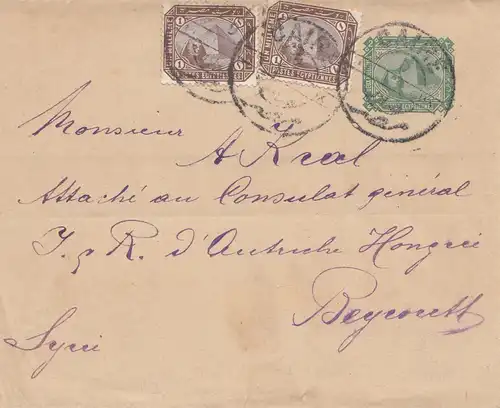 UN MILLIEME
POSTES EGYPTIENNES
1
UN MILLIEME
POSTES EGYPTIENNES
1
CAIRE
Monsieur
A Kral
Attaché au Consulat général
I. & R. d'Autriche Hongrie
Beyrouth
Syrie